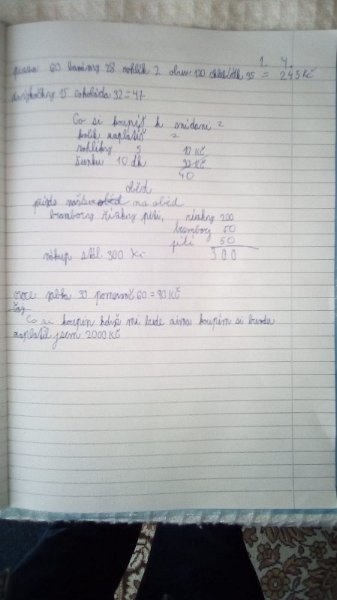 1. 4.
60 banány 28 rohlík 2 120 35 = 245 Kč
15 čokoláda 32 = 47
Co si koupíš k snídani ?
kolik zaplatíš ?
rohlíky 5 10 Kč
šunku 10 dk 30 Kč
40
oběd
přijde na oběd
brambory řízky pití, řízky 200
brambory 50
pití 50
nákup stál 300 Kč 300
ovoce jabka 30 pomeranč 60 = 90 Kč
Co si koupím když mi bude zima koupím si bundu
zaplatil jsem 2000 Kč